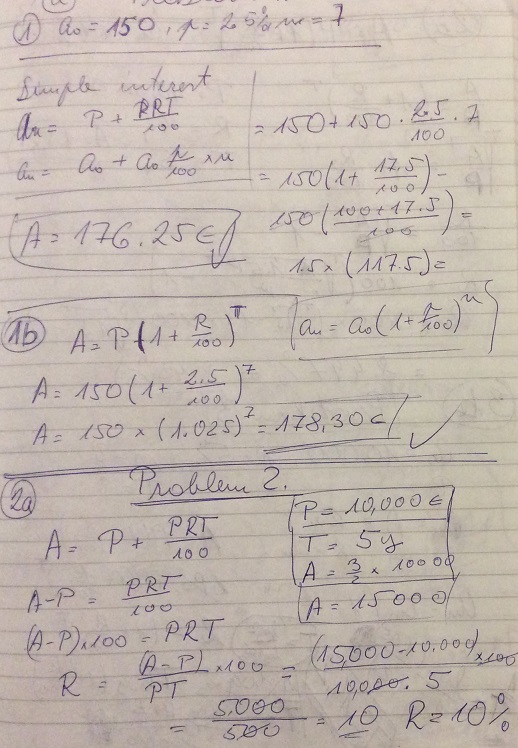 ① a₀ = 150, p = 2.5%, n = 7
Simple interest
aₙ = P + PRT/100
aₙ = a₀ + a₀ p/100 × n
= 150 + 150 · 2.5/100 · 7
= 150(1 + 17.5/100) =
150(100+17.5/100) =
1.5 × (117.5) =
A = 176.25€
1b A = P(1 + R/100)^T
aₙ = a₀(1 + p/100)ⁿ
A = 150(1 + 2.5/100)⁷
A = 150 × (1.025)⁷ = 178,30€ ✓
Problem 2.
2a
A = P + PRT/100
P = 10,000€
T = 5y
A = 3/2 × 10000
A = 15000
A-P = PRT/100
(A-P)×100 = PRT
R = (A-P)/PT × 100 = (15,000-10.000)/10,000. 5 × 100
= 5000/500 = 10 R = 10%